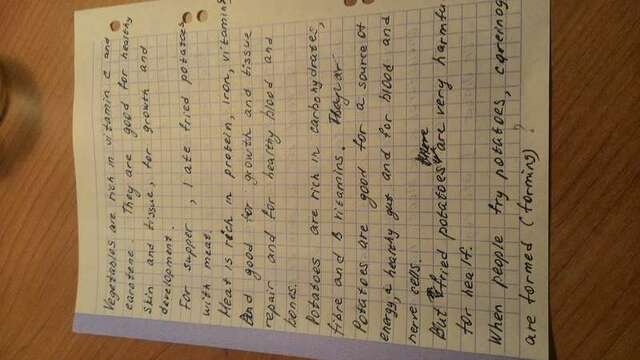 Vegetables are rich in vitamin C and
carotene. They are good for healthy
skin and tissue, for growth and
development.
For supper, I ate fried potatoes
with meat.
Meat is rich in protein, iron, vitamins
and good for growth and tissue
repair and for healthy blood and
bones.
Potatoes are rich in carbohydrates,
fibre and B vitamins. They ar
Potatoes are good for a source of
energy, a healthy gut and for blood and
nerve cells.
But fried potatoes are very harmfu
for healf.
When people fry potatoes, carcinog
are formed (forming) ?